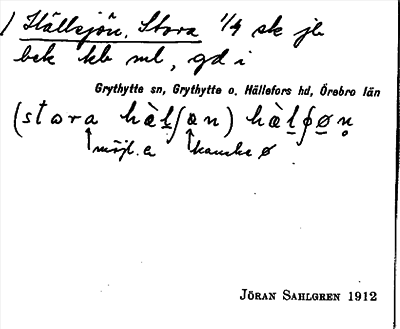 1) Hällsjön, Stora 1/4 sk jb
bek kb ml, gd i
Grythytte sn, Grythytte o. Hällefors hd, Örebro län
(stora hèlʃæn) hèlʃøn
möjl. a kanske ø
JÖRAN SAHLGREN 1912